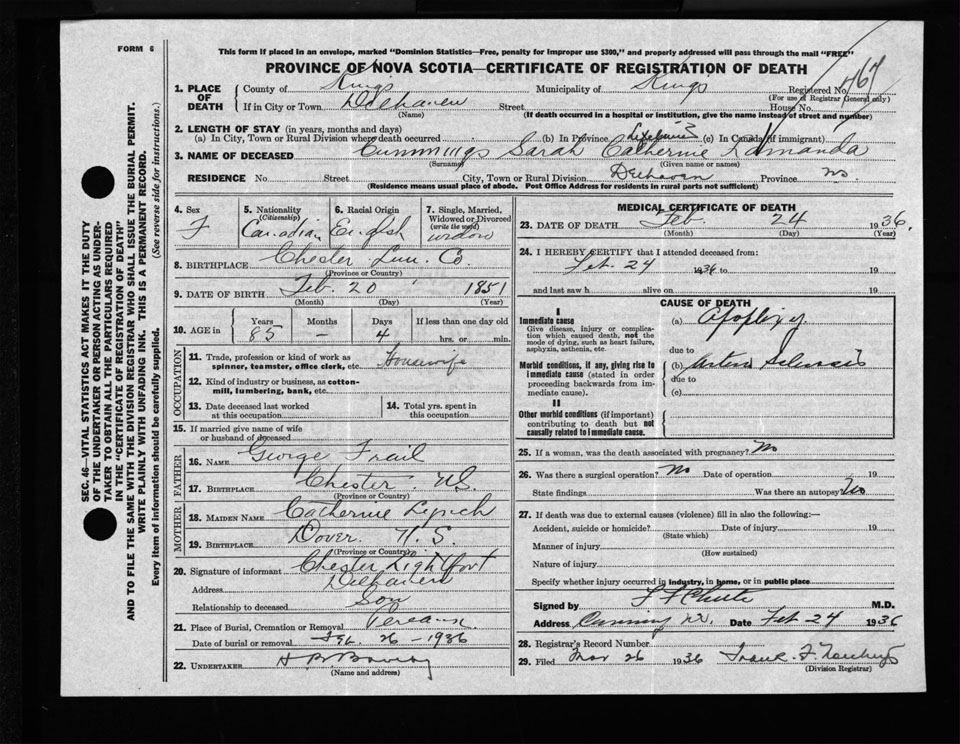 FORM 6
This form if placed in an envelope, marked "Dominion Statistics—Free, penalty for improper use $300," and properly addressed will pass through the mail "FREE"
PROVINCE OF NOVA SCOTIA—CERTIFICATE OF REGISTRATION OF DEATH
1. PLACE OF DEATH
County of Kings Municipality of Kings Registered No. 767
(For use of Registrar General only)
If in City or Town Delhaven Street House No.
(Name) (If death occurred in a hospital or institution, give its name instead of street and number)
2. LENGTH OF STAY (in years, months and days)
(a) In City, Town or Rural Division where death occurred (b) In Province Lifetime (c) In Canada (if immigrant)
3. NAME OF DECEASED Cummings Sarah Catherine Lamanda
(Surname) (Given name or names)
RESIDENCE No. Street City, Town or Rural Division Delhaven Province NS
(Residence means usual place of abode. Post Office Address for residents in rural parts not sufficient)
4. Sex F
5. Nationality (Citizenship) Canadian
6. Racial Origin English
7. Single, Married, Widowed or Divorced (write the word) widow
8. BIRTHPLACE Chester Lun. Co.
(Province or Country)
9. DATE OF BIRTH Feb. 20 1851
(Month) (Day) (Year)
10. AGE in Years 85 Months – Days 4 If less than one day old hrs. or min.
OCCUPATION
11. Trade, profession or kind of work as spinner, teamster, office clerk, etc. Housewife
12. Kind of industry or business, as cotton-mill, lumbering, bank, etc.
13. Date deceased last worked at this occupation
14. Total yrs. spent in this occupation
15. If married give name of wife or husband of deceased
FATHER
16. NAME George Frail
17. BIRTHPLACE Chester N.S.
(Province or Country)
MOTHER
18. MAIDEN NAME Catherine
19. BIRTHPLACE Dover N.S.
(Province or Country)
20. Signature of informant Chester Lightfoot
Address Delhaven
Relationship to deceased Son
21. Place of Burial, Cremation or Removal Pereaux
Date of burial or removal Feb. 26 - 1936
22. UNDERTAKER H B
(Name and address)
MEDICAL CERTIFICATE OF DEATH
23. DATE OF DEATH Feb. 24 1936.
(Month) (Day) (Year)
24. I HEREBY CERTIFY that I attended deceased from:
Feb. 24 1936 to 19
and last saw h alive on 19
CAUSE OF DEATH
I
Immediate cause
Give disease, injury or complication which caused death, not the mode of dying, such as heart failure, asphyxia, asthenia, etc.
(a) Apoplexy
due to
Morbid conditions, if any, giving rise to immediate cause (stated in order proceeding backwards from immediate cause).
(b) Arterio Sclerosis
due to
(c)
II
Other morbid conditions (if important) contributing to death but not causally related to immediate cause.
25. If a woman, was the death associated with pregnancy? No
26. Was there a surgical operation? No Date of operation 19
State findings Was there an autopsy? No
27. If death was due to external causes (violence) fill in also the following:—
Accident, suicide or homicide? Date of injury 19
(State which)
Manner of injury
(How sustained)
Nature of injury
Specify whether injury occurred in industry, in home, or in public place
Signed by M.D.
Address Canning N.S. Date Feb 24 1936
28. Registrar's Record Number
29. Filed Mar 26 1936 Frank F.
(Division Registrar)
SEC. 46—VITAL STATISTICS ACT MAKES IT THE DUTY
OF THE UNDERTAKER OR PERSON ACTING AS UNDER-
TAKER TO OBTAIN ALL THE PARTICULARS REQUIRED
IN THE "CERTIFICATE OF REGISTRATION OF DEATH"
AND TO FILE THE SAME WITH THE DIVISION REGISTRAR WHO SHALL ISSUE THE BURIAL PERMIT.
WRITE PLAINLY WITH UNFADING INK. THIS IS A PERMANENT RECORD.
Every item of information should be carefully supplied. (See reverse side for instructions.)